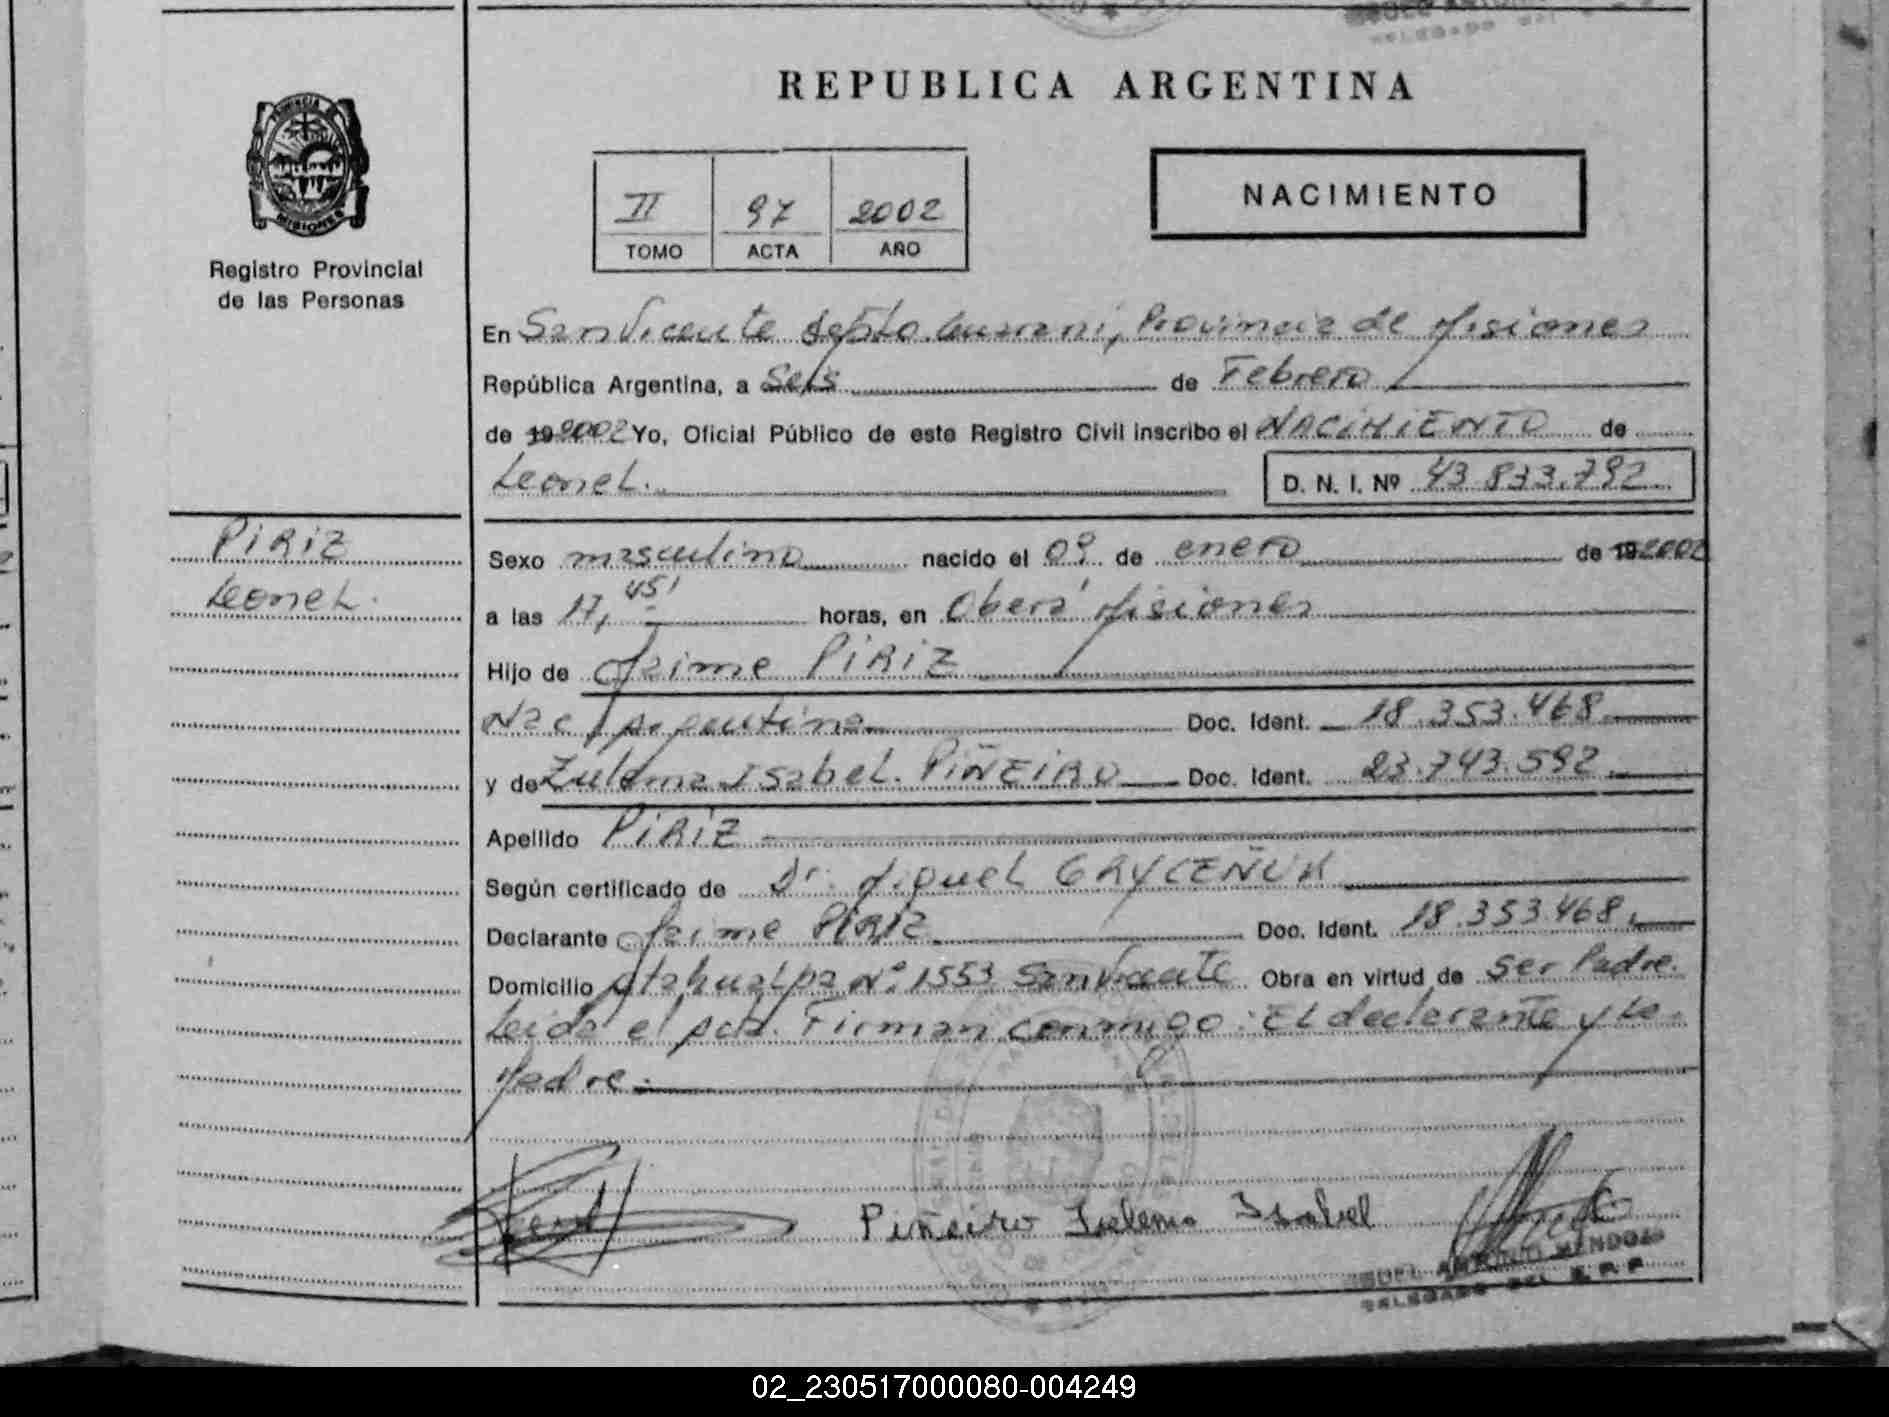 REPUBLICA ARGENTINA
PROVINCIA DE
MISIONES
Registro Provincial
de las Personas
II 97 2002
TOMO ACTA AÑO
NACIMIENTO
En San Vicente Depto. Guarani, Provincia de Misiones
República Argentina, a Seis de Febrero
de 19 2002 Yo, Oficial Público de este Registro Civil inscribo el NACIMIENTO de
Leonel. D. N. I. Nº 43.873.792
PIRIZ
Leonel.
Sexo masculino nacido el 09 de enero de 19 2002
a las 17,45' horas, en Oberá Misiones
Hijo de Jaime PIRIZ
Nac. Argentina Doc. Ident. 18.353.468
y de Zulema Isabel. PIÑEIRO Doc. Ident. 23.743.592
Apellido PIRIZ
Según certificado de Dr. Miguel
Declarante Jaime PIRIZ Doc. Ident. 18.353.468
Domicilio Atahualpa Nº 1553 San Vicente Obra en virtud de ser Padre.
Leida el acta. Firman conmigo: El declarante y la
Madre.
Piñeiro Zulema Isabel
ANTONIO MENDOZA
DELEGADO DEL R. P. P.
02_230517000080-004249